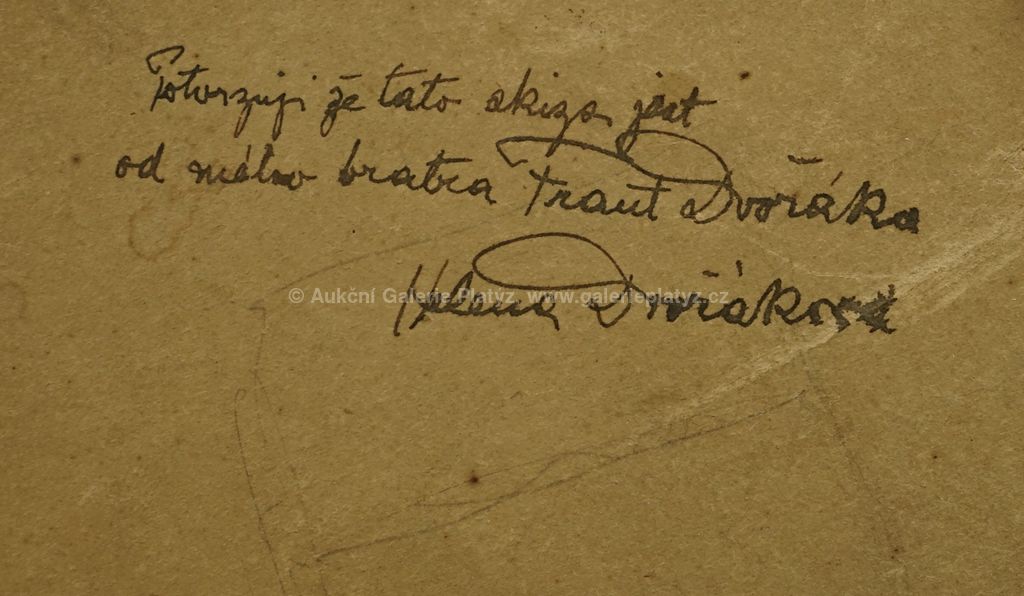 Potvrzuji že tato skizo jest
od mého bratra Frant Dvořáka
© Aukční Galerie Platýz, www.galerieplatyz.cz
Helena Dvořáková